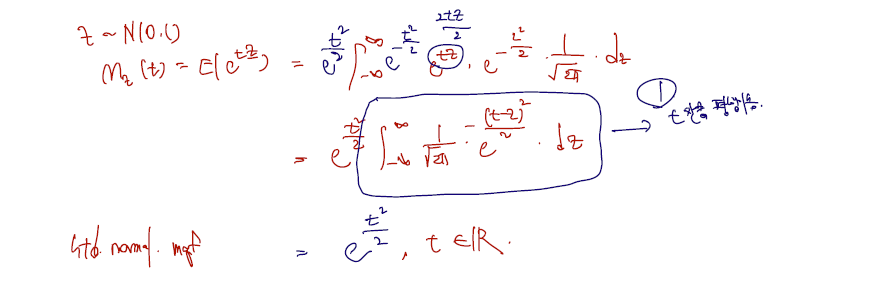 Z ~ N(0,1)
M_Z(t) = E(e^{tZ}) = e^{t²/2} ∫_{-∞}^{∞} e^{-t²/2} e^{tz} · e^{-z²/2} · 1/√2π · dz
2tz/2
= e^{t²/2} ∫_{-∞}^{∞} 1/√2π · e^{-(t-z)²/2} · dz → 1
Std. normal. mgf = e^{t²/2}, t ∈ ℝ.